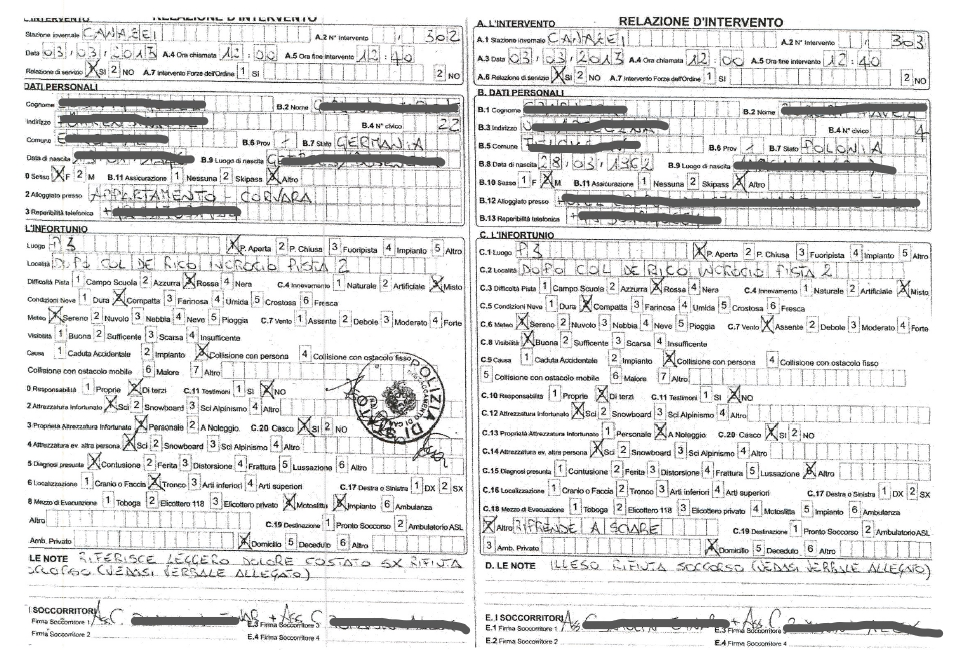 RELAZIONE D'INTERVENTO
Stazione invernale CANAZEI A.2 N° Intervento 302
Data 03/03/2013 A.4 Ora chiamata 12:00 A.5 Ora fine intervento 12:40
Relazione di servizio X SI 2 NO A.7 Intervento Forze dell'Ordine 1 SI 2 NO
DATI PERSONALI
Cognome B.2 Nome
Indirizzo B.4 N° civico 22
Comune B.6 Prov - B.7 Stato GERMANIA
Data di nascita B.9 Luogo di nascita
0 Sesso X F 2 M B.11 Assicurazione 1 Nessuna 2 Skipass X Altro
2 Alloggiato presso APPARTAMENTO CORVARA
3 Reperibilità telefonica +
L'INFORTUNIO
Luogo P3 X P. Aperta 2 P. Chiusa 3 Fuoripista 4 Impianto 5 Altro
Località DOPO COL DE RICO INCROCIO PISTA 2
Difficoltà Pista 1 Campo Scuola 2 Azzurra X Rossa 4 Nera C.4 Innevamento 1 Naturale 2 Artificiale X Misto
Condizioni Neve 1 Dura X Compatta 3 Farinosa 4 Umida 5 Crostosa 6 Fresca
Meteo X Sereno 2 Nuvolo 3 Nebbia 4 Neve 5 Pioggia C.7 Vento 1 Assente 2 Debole 3 Moderato 4 Forte
Visibilità 1 Buona 2 Sufficente 3 Scarsa 4 Insufficente
Causa 1 Caduta Accidentale 2 Impianto X Collisione con persona 4 Collisione con ostacolo fisso
Collisione con ostacolo mobile 6 Malore 7 Altro
0 Responsabilità 1 Proprie X Di terzi C.11 Testimoni 1 SI X NO
2 Attrezzatura Infortunato X Sci 2 Snowboard 3 Sci Alpinismo 4 Altro
3 Proprietà Attrezzatura Infortunato X Personale 2 A Noleggio C.20 Casco X SI 2 NO
4 Attrezzatura ev. altra persona X Sci 2 Snowboard 3 Sci Alpinismo 4 Altro
5 Diagnosi presunta X Contusione 2 Ferita 3 Distorsione 4 Frattura 5 Lussazione 6 Altro
6 Localizzazione 1 Cranio o Faccia X Tronco 3 Arti inferiori 4 Arti superiori C.17 Destra o Sinistra 1 DX 2 SX
8 Mezzo di Evacuazione 1 Toboga 2 Elicottero 118 3 Elicottero privato X Motoslitta X Impianto 6 Ambulanza
Altro C.19 Destinazione 1 Pronto Soccorso 2 Ambulatorio ASL
Amb. Privato X Domicilio 5 Deceduto 6 Altro
LE NOTE RIFERISCE LEGGERO DOLORE COSTATO SX RIFIUTA
(VEDASI VERBALE ALLEGATO)
I SOCCORRITORI
Firma Soccorritore 1 Ass.C. + Ass C. E.3 Firma Soccorritore 3
Firma Soccorritore 2 E.4 Firma Soccorritore 4
POLIZIA DI STATO
RELAZIONE D'INTERVENTO
A. L'INTERVENTO
A.1 Stazione invernale CANAZEI A.2 N° Intervento 303
A.3 Data 03/03/2013 A.4 Ora chiamata 12:00 A.5 Ora fine intervento 12:40
A.6 Relazione di servizio X SI 2 NO A.7 Intervento Forze dell'Ordine 1 SI 2 NO
B. DATI PERSONALI
B.1 Cognome B.2 Nome
B.3 Indirizzo B.4 N° civico 4
B.5 Comune B.6 Prov - B.7 Stato POLONIA
B.8 Data di nascita 28/03/1962 B.9 Luogo di nascita
B.10 Sesso 1 F X M B.11 Assicurazione 1 Nessuna 2 Skipass X Altro
B.12 Alloggiato presso
B.13 Reperibilità telefonica +
C. L'INFORTUNIO
C.1 Luogo P3 X P. Aperta 2 P. Chiusa 3 Fuoripista 4 Impianto 5 Altro
C.2 Località DOPO COL DE RICO INCROCIO PISTA 2
C.3 Difficoltà Pista 1 Campo Scuola 2 Azzurra X Rossa 4 Nera C.4 Innevamento 1 Naturale 2 Artificiale X Misto
C.5 Condizioni Neve 1 Dura X Compatta 3 Farinosa 4 Umida 5 Crostosa 6 Fresca
C.6 Meteo X Sereno 2 Nuvolo 3 Nebbia 4 Neve 5 Pioggia C.7 Vento X Assente 2 Debole 3 Moderato 4 Forte
C.8 Visibilità X Buona 2 Sufficente 3 Scarsa 4 Insufficente
C.9 Causa 1 Caduta Accidentale 2 Impianto X Collisione con persona 4 Collisione con ostacolo fisso
5 Collisione con ostacolo mobile 6 Malore 7 Altro
C.10 Responsabilità 1 Proprie X Di terzi C.11 Testimoni 1 SI X NO
C.12 Attrezzatura Infortunato X Sci 2 Snowboard 3 Sci Alpinismo 4 Altro
C.13 Proprietà Attrezzatura Infortunato 1 Personale X A Noleggio C.20 Casco X SI 2 NO
C.14 Attrezzatura ev. altra persona X Sci 2 Snowboard 3 Sci Alpinismo 4 Altro
C.15 Diagnosi presunta 1 Contusione 2 Ferita 3 Distorsione 4 Frattura 5 Lussazione X Altro
C.16 Localizzazione 1 Cranio o Faccia 2 Tronco 3 Arti inferiori 4 Arti superiori C.17 Destra o Sinistra 1 DX 2 SX
C.18 Mezzo di Evacuazione 1 Toboga 2 Elicottero 118 3 Elicottero privato 4 Motoslitta 5 Impianto 6 Ambulanza
X Altro RIPRENDE A SCIARE C.19 Destinazione 1 Pronto Soccorso 2 Ambulatorio ASL
3 Amb. Privato X Domicilio 5 Deceduto 6 Altro
D. LE NOTE ILLESO RIFIUTA SOCCORSO (VEDASI VERBALE ALLEGATO)
E. I SOCCORRITORI
E.1 Firma Soccorritore 1 Ass C. + Ass C. E.3 Firma Soccorritore 3
E.2 Firma Soccorritore 2 E.4 Firma Soccorritore 4